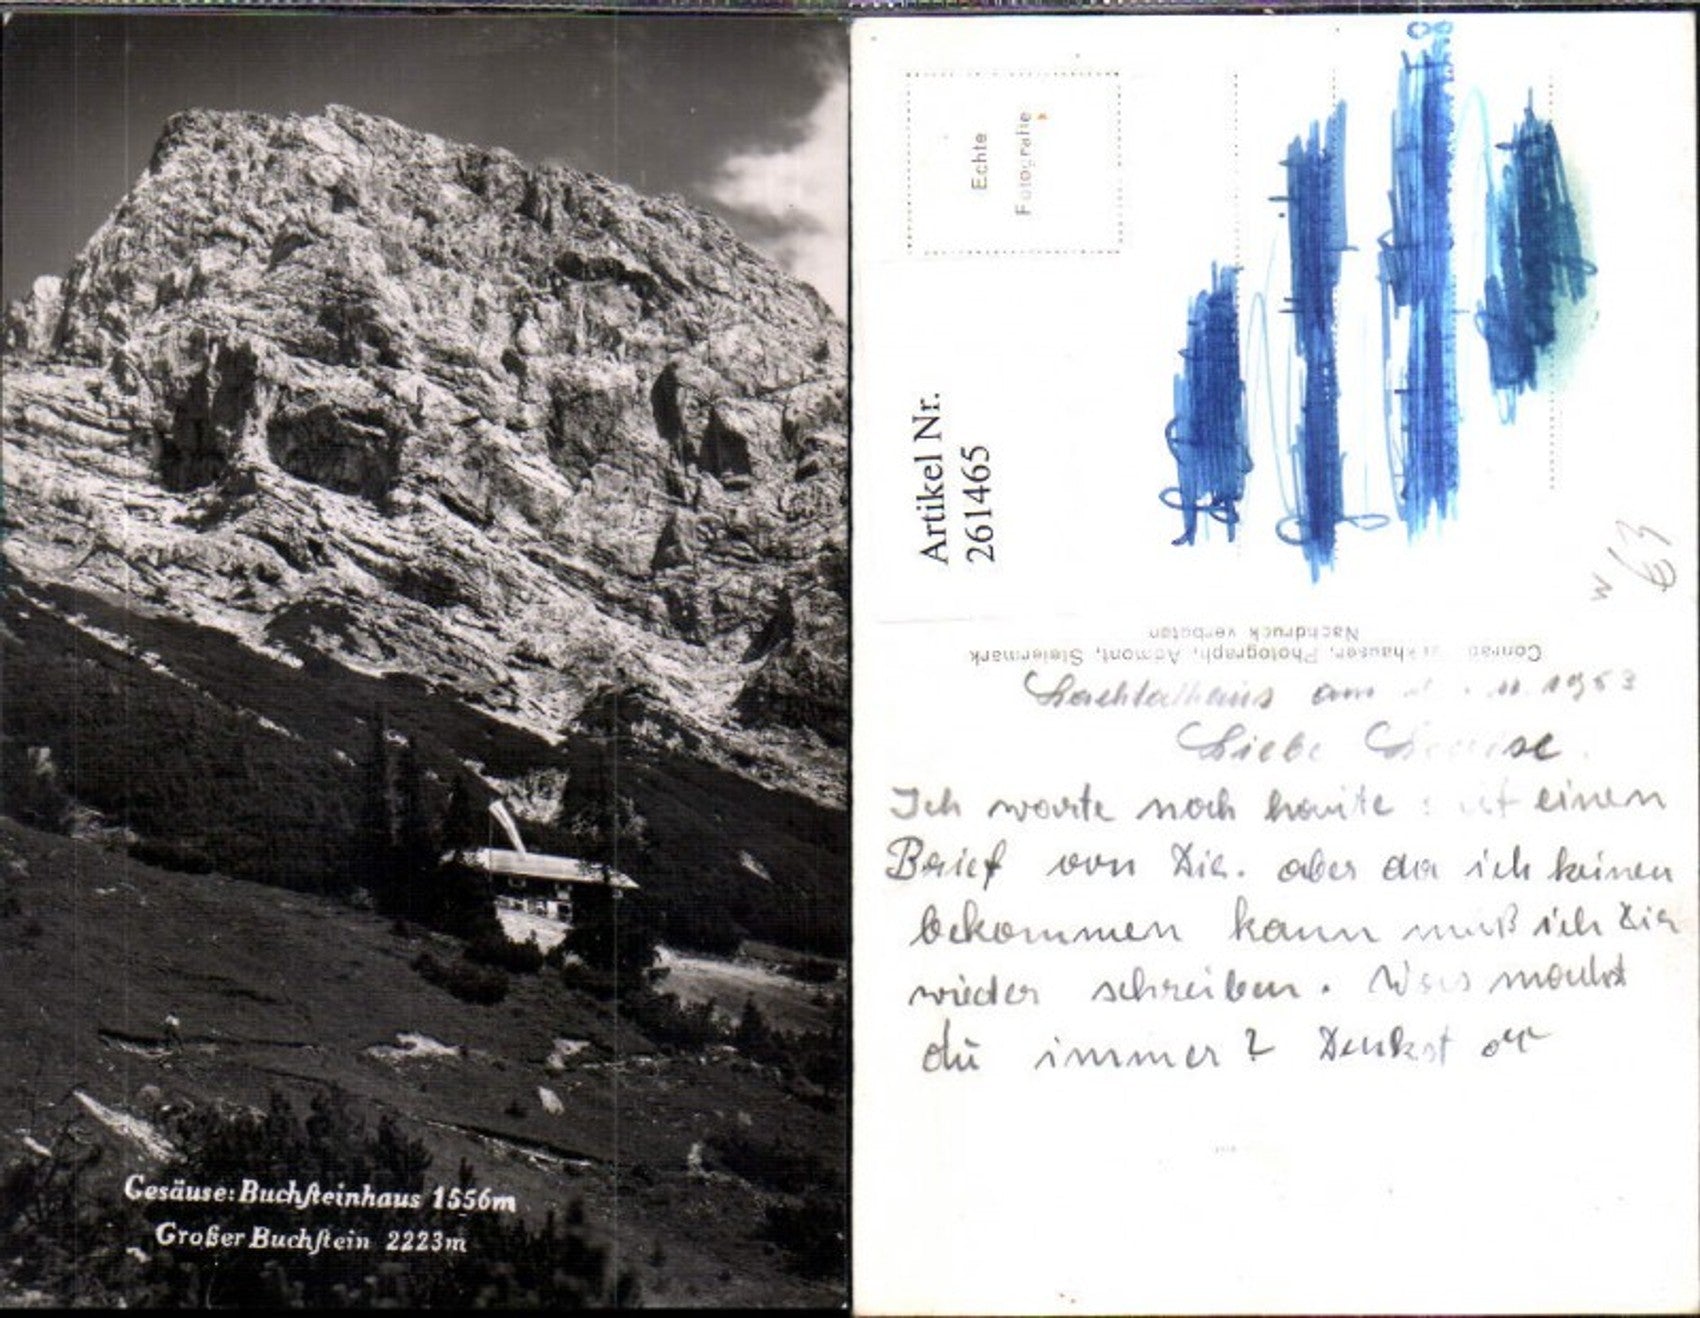 Gesäuse: Buchsteinhaus 1556m
Großer Buchstein 2223m
Echte
Fotografie
Artikel Nr.
261465
W
63
Photograph, Admont, Steiermark
Nachdruck verboten
am 11. 1963
Liebe
Ich warte noch heute einen
Brief von Dir. aber da ich keinen
bekommen kann muß ich Dir
wieder schreiben. Was machst
du immer? Denkst oft